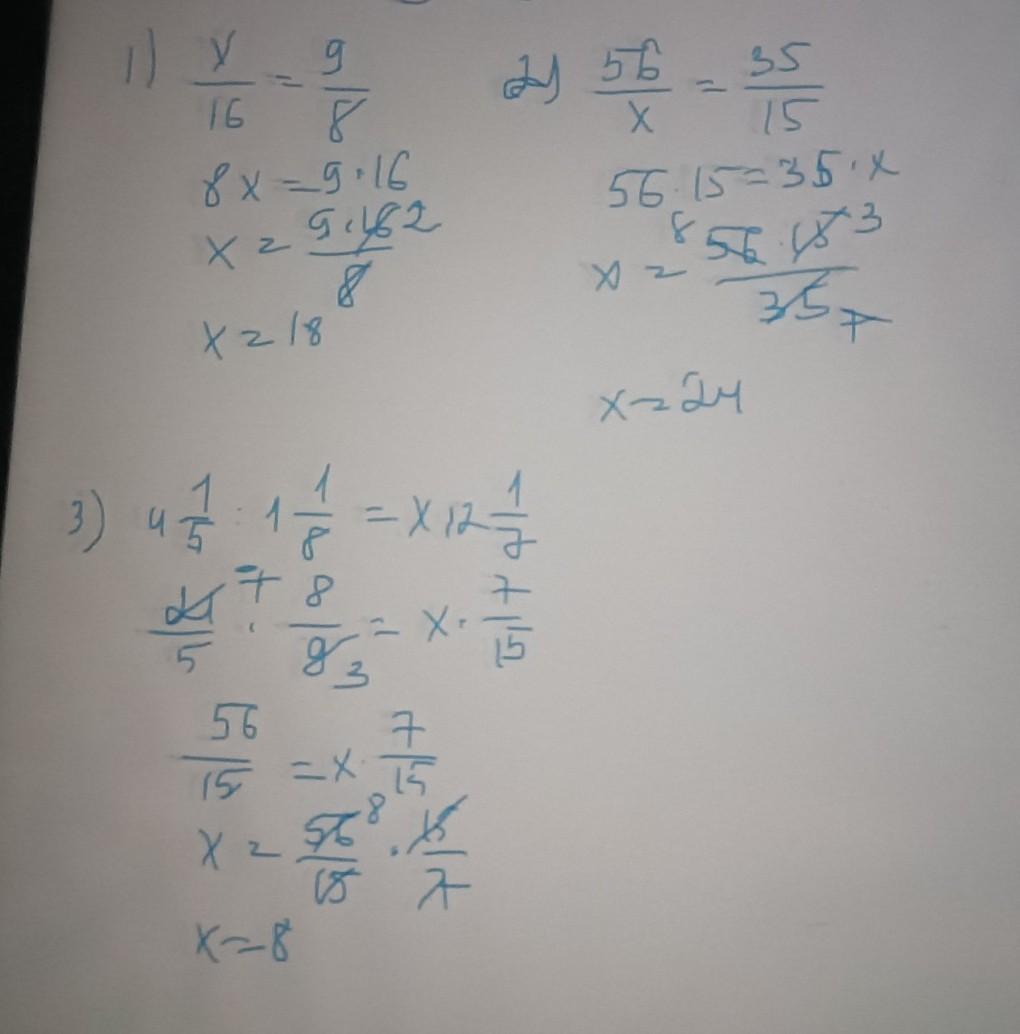 1) x/16 = 9/8
8x = 9·16
x = 9·16 2/8
x = 18
2) 56/x = 35/15
56·15 = 35·x
x = 8 56·15 3/35 7
x = 24
3) 4 1/5 : 1 1/8 = x : 2 1/7
21 7/5 · 8/9 3 = x · 7/15
56/15 = x · 7/15
x = 56 8/15 · 15/7
x = 8